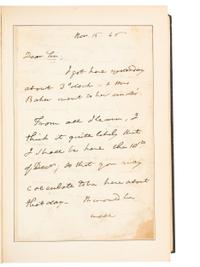 Nov 15 65
Dear Sir,
I got here yesterday
about 3 o'clock - & Mrs
Baker went to her
From all I learn, I
think it quite likely that
I shall be here the 10th
of Decr, so that you may
calculate to be here about
that day.